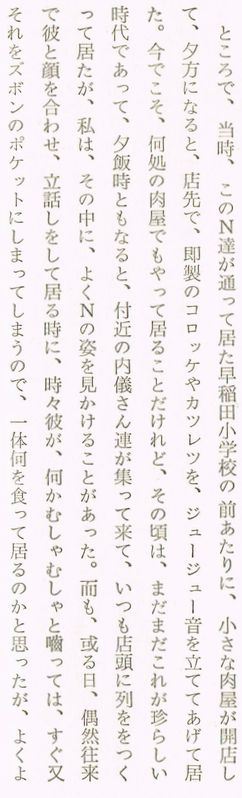 ところで、当時、このN達が通って居た早稲田小学校の前あたりに、小さな肉屋が開店し
て、夕方になると、店先で、即製のコロッケやカツレツを、ジュージュー音を立ててあげて居
た。今でこそ、何処の肉屋でもやって居ることだけれど、その頃は、まだまだこれが珍らしい
時代であって、夕飯時ともなると、付近の内儀さん連が集って来て、いつも店頭に列ををつく
って居たが、私は、その中に、よくNの姿を見かけることがあった。而も、或る日、偶然往来
で彼と顔を合わせ、立話しをして居る時に、時々彼が、何かむしゃむしゃと嚙っては、すぐ又
それをズボンのポケットにしまってしまうので、一体何を食って居るのかと思ったが、よくよ